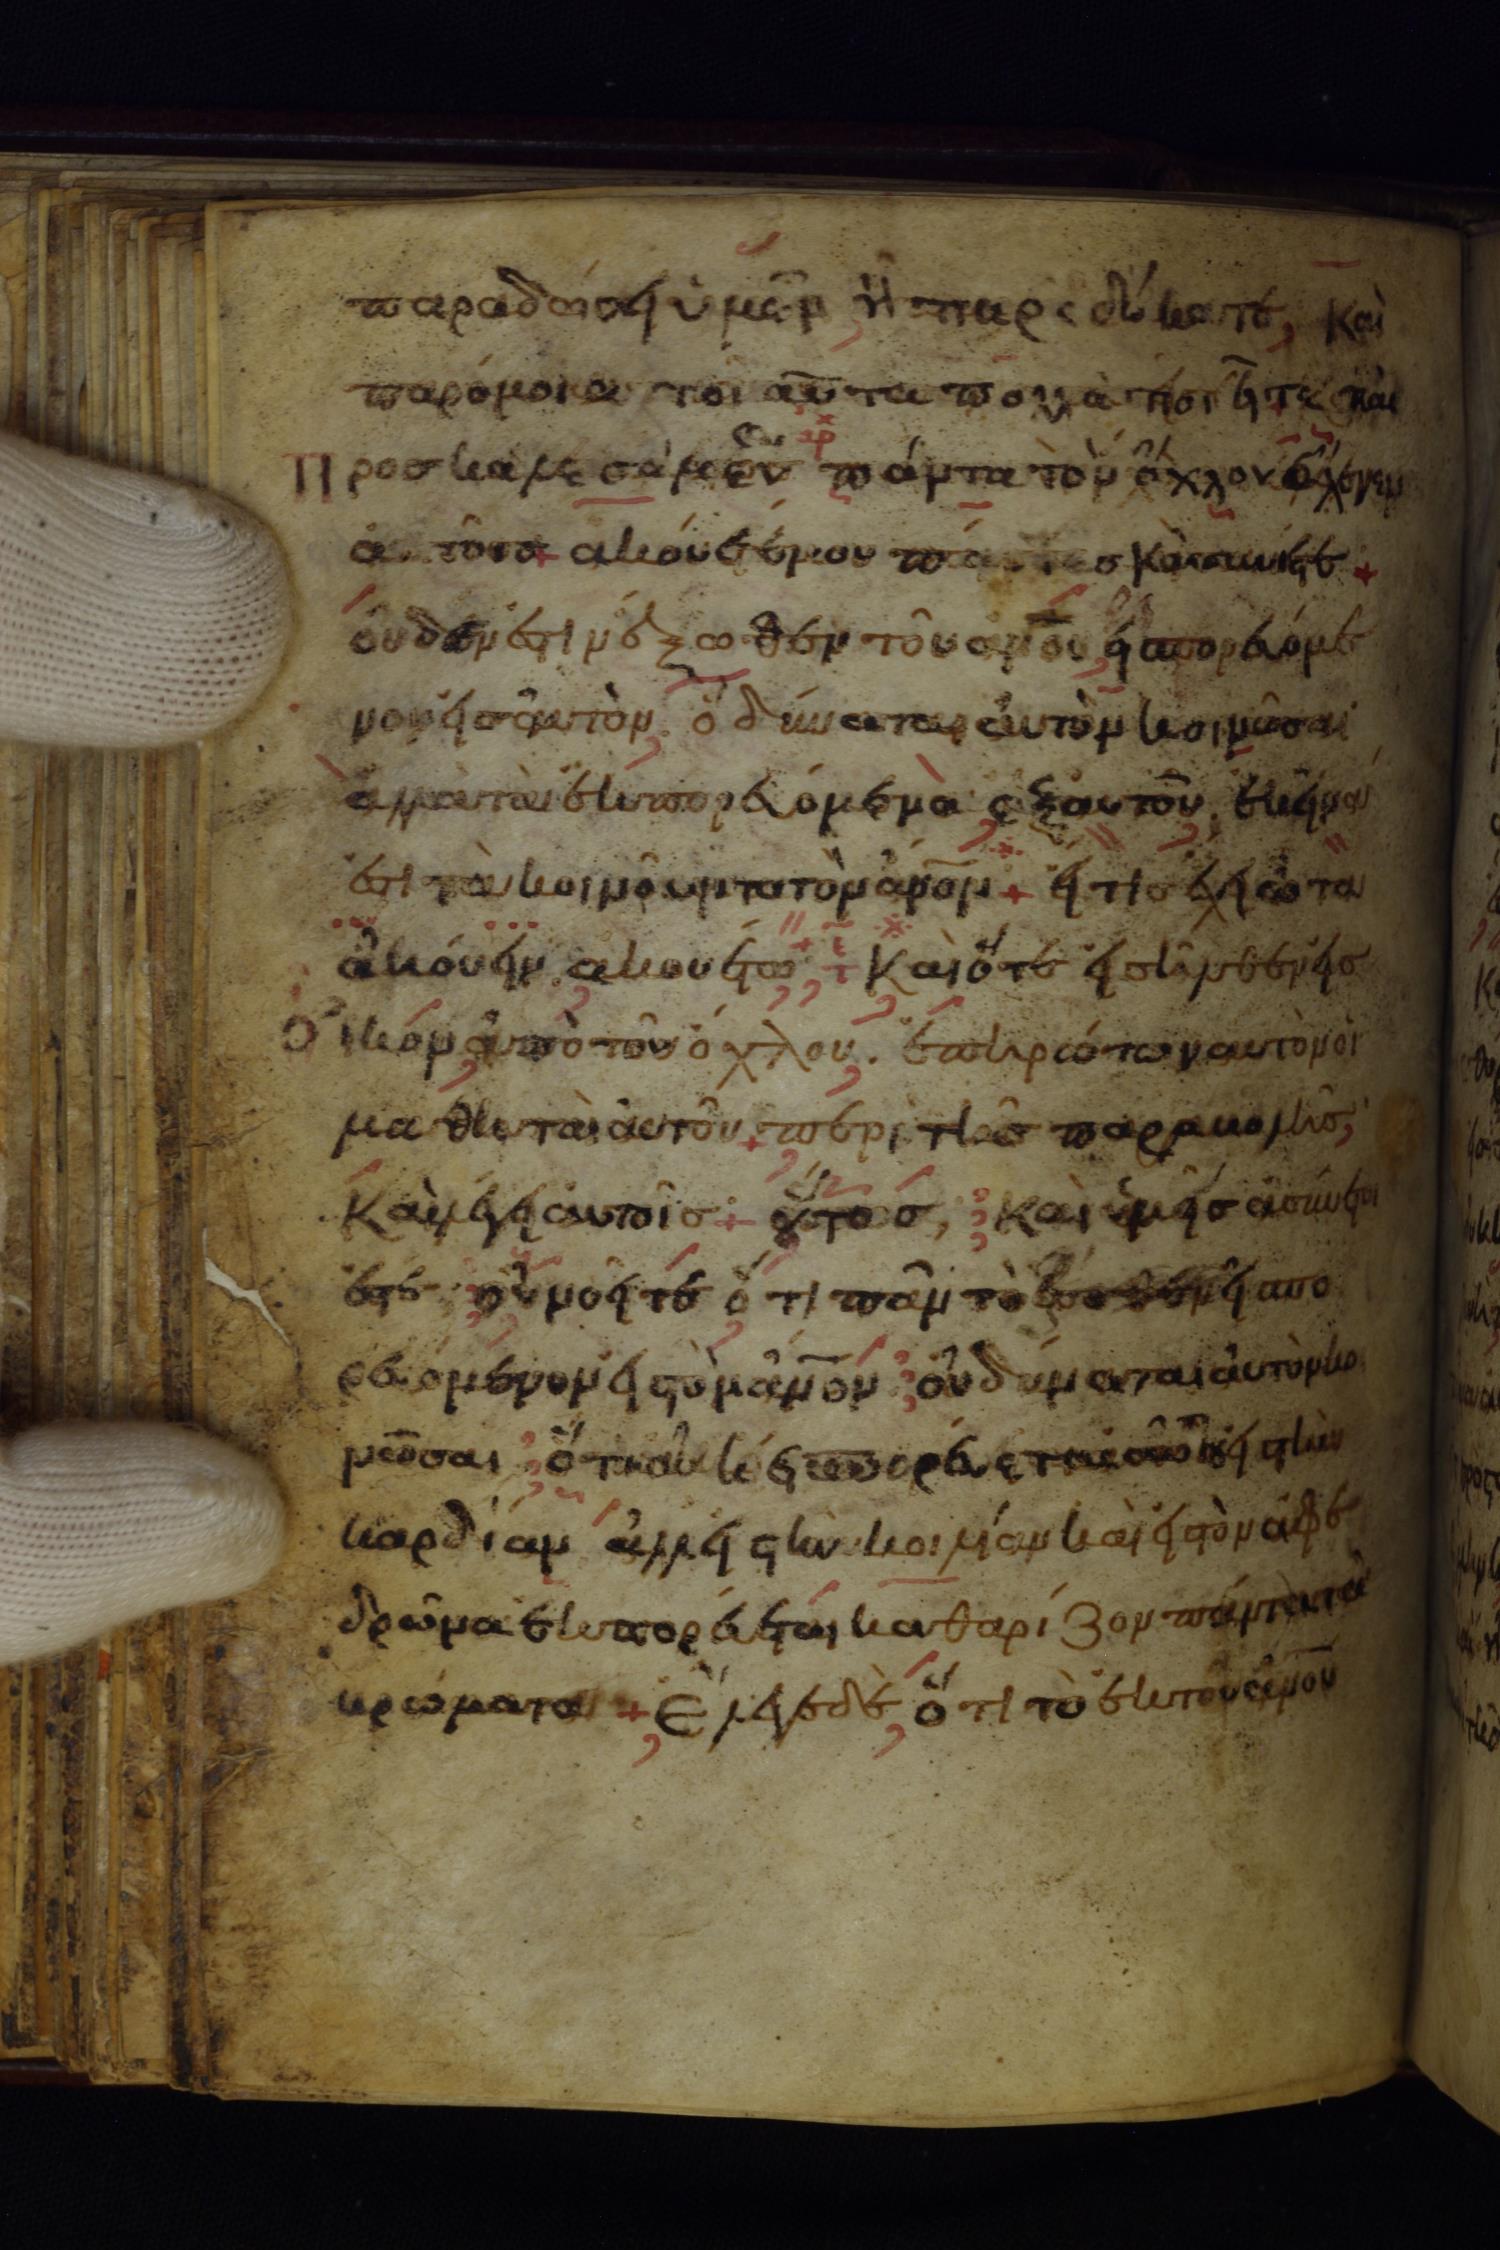 παραδώσει ὑμῶν ἧ παρεδώκατε, Καὶ
παρόμοια τοιαῦτα πολλὰ ποιεῖτε Καὶ
Προσκαλεσάμενος πάντα τὸν ὄχλον ἔλεγεν
αὐτοῖς + ἀκούετέ μου πάντες Καὶ συνίετε +
οὐδέν ἐστιν ἔξωθεν τοῦ ἀνου εἰσπορευόμε
νον εἰς αὐτὸν. ὃ δύναται αὐτὸν κοινῶσαι
ἀλλὰ τὰ ἐκπορευόμενα ἐξ αὐτοῦ. ἐκεῖνά
ἐστι τὰ κοινοῦντα τὸν ἄνον + εἴ τις ἔχει ὦτα
ἀκούειν ἀκουέτω + Καὶ ὅτε εἰσῆλθεν εἰς
Οἶκον ἀπὸ τοῦ ὄχλου. ἐπηρώτων αὐτὸν οἱ
μαθηταὶ αὐτοῦ + περὶ τῆς παραβολῆς,
Καὶ λέγει αὐτοῖς + οὕτως, Καὶ ὑμεῖς ἀσύνετοί
ἐστε οὐ νοεῖτε ὅτι πᾶν τὸ ἔξωθεν εἰσπο
ρευόμενον εἰς τὸν ἄνον οὐ δύναται αὐτὸν κοι
νῶσαι ὅτι οὐκ εἰσπορεύεται αὐτοῦ εἰς τὴν
καρδίαν ἀλλ εἰς τὴν κοιλίαν καὶ εἰς τὸν ἀφε
δρῶνα ἐκπορεύεται καθαρίζον πάντα τὰ
βρώματα + Ἔλεγε δὲ, ὅτι τὸ ἐκ τοῦ ἀνου